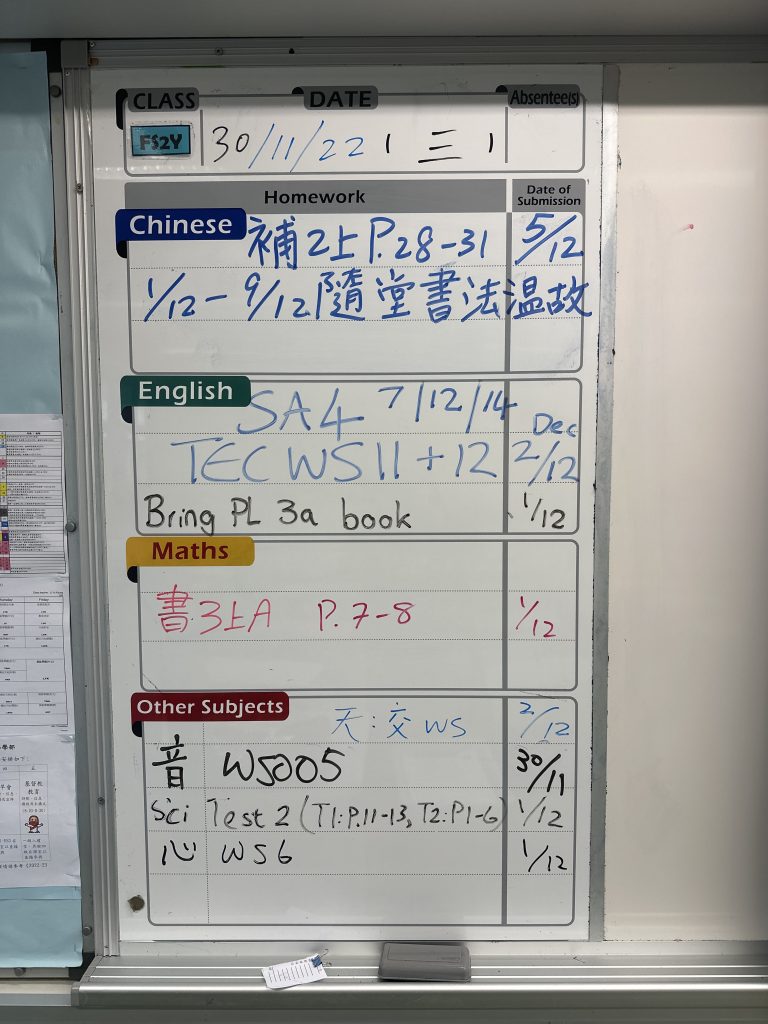 CLASS DATE Absentee(s)
FS2Y 30/11/22 ( 三 )
Homework Date of Submission
Chinese 補2上P.28-31 5/12
1/12-9/12隨堂書法温故
English SA4 7/12/14 Dec
TEC WS 11 + 12 2/12
Bring PL 3a book 1/12
Maths
書3上A P.7-8 1/12
Other Subjects 天:交WS 2/12
音 WS005 30/11
Sci Test 2 (T1:P.11-13, T2:P1-6) 1/12
心 WS6 1/12
基督教
教育